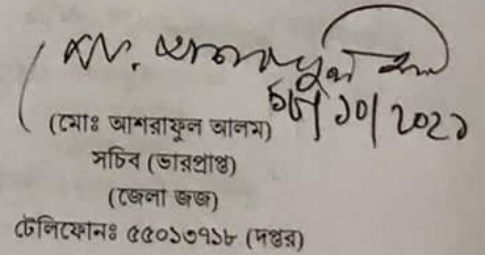 ১৮/১০/২০২১
(মোঃ আশরাফুল আলম)
সচিব (ভারপ্রাপ্ত)
(জেলা জজ)
টেলিফোনঃ ৫৫০১৩৭১৮ (দপ্তর)